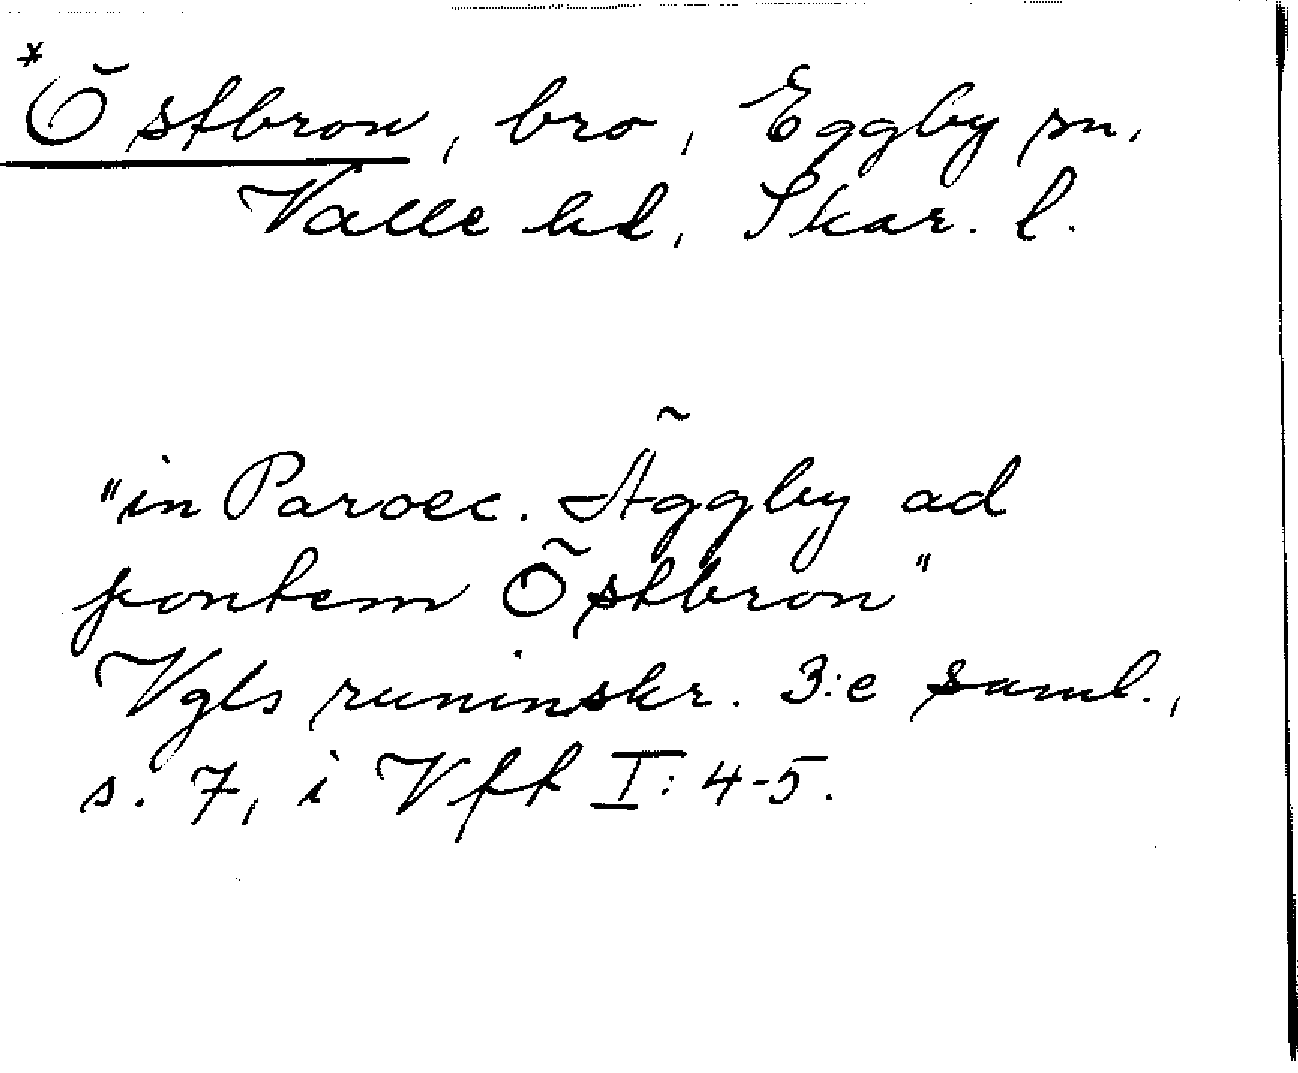 *Östbron, bro, Eggby sn,
Valle hd, Skar. l.
"in Paroec. Äggby ad
pontem Östbron"
Vgls runinskr. 3:e saml.,
s. 7, i Vfft I: 4-5.